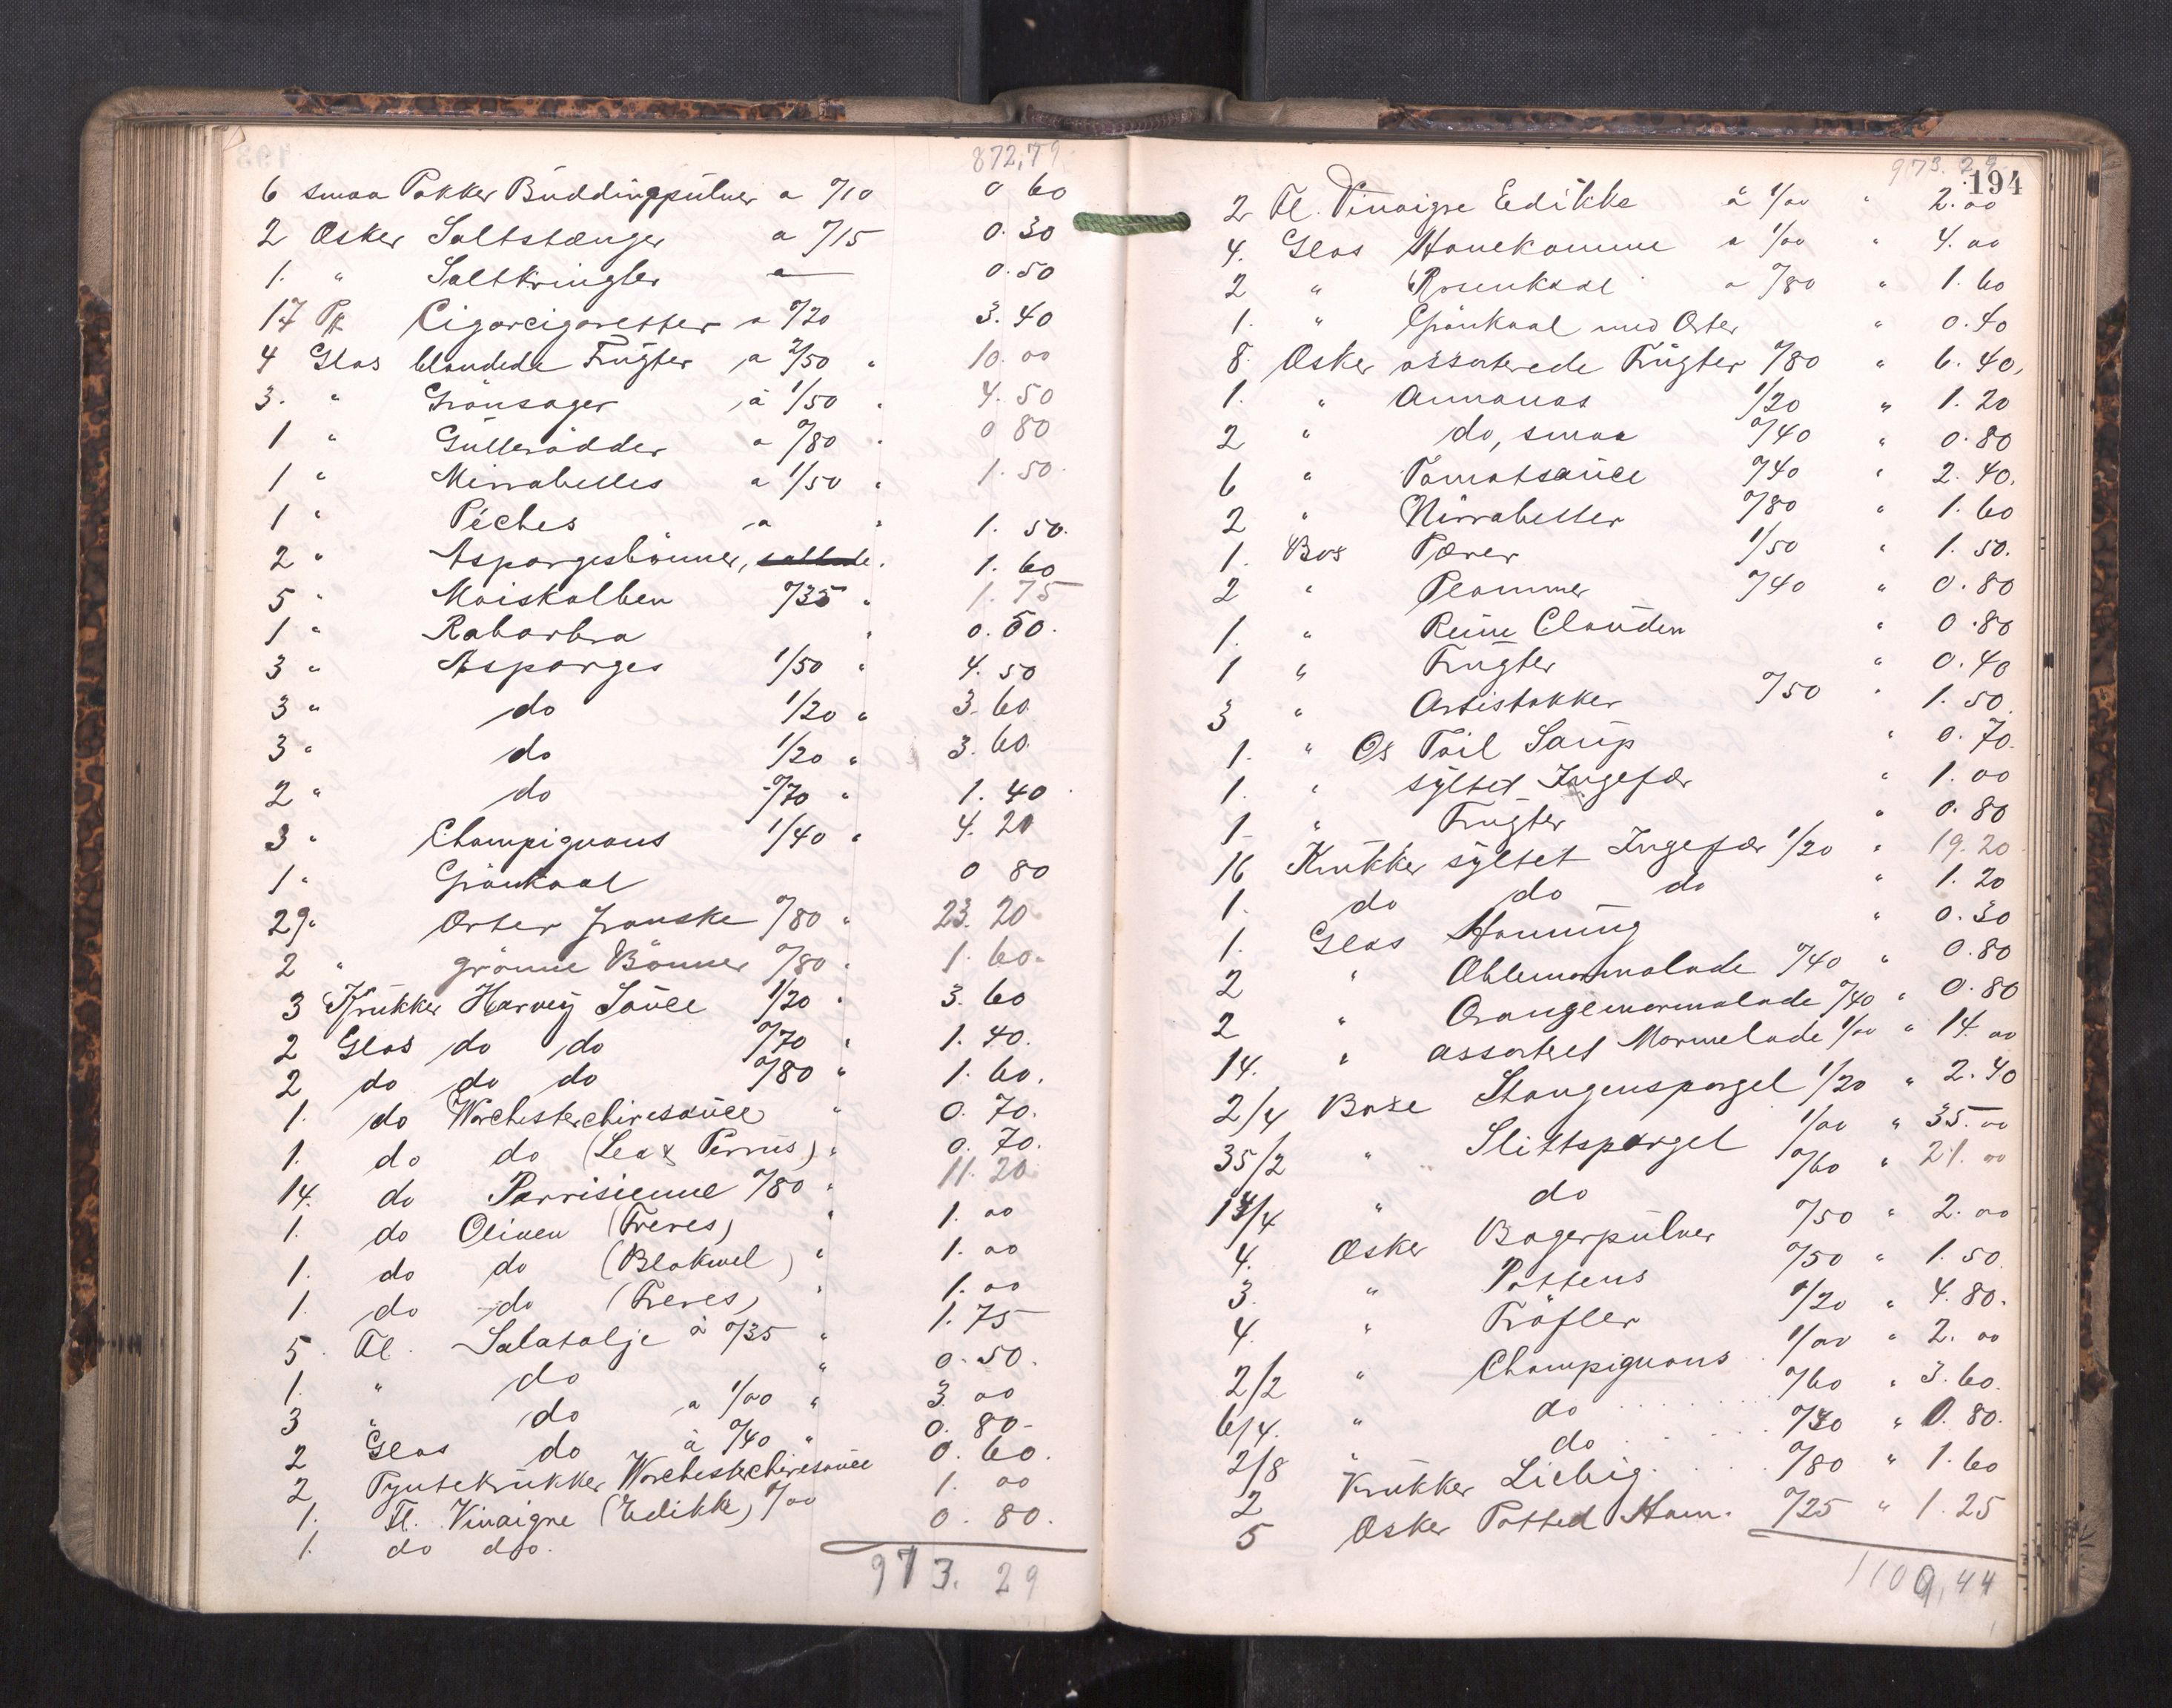 872,79
6 smaa Pakker Buddingpulver a 0/10 0 60
2 Æsker Saltstænger a 0/15 0.30
1. " Saltkringler a — 0.50
17 Pk Cigarcigaretter a 0/20 3.40
4 Glas blandede Frugter a 2/50 " 10.00
3. " Grönsager á 1/50 " 4.50
1 " Gullerödder a 0/80 " 0 80
1 " Mirrabelles a 1/50 " 1.50
1 " Péches a " 1.50.
2 " Aspargesbönner, 1.60
5 " Maiskolben 0/35 " 1.75
1 " Rabarbra " 0.50.
3 " Asparges 1/50 " 4.50
3 " do 1/20 " 3.60
3 " do 1/20 " 3.60.
2 " do 0/70 " 1.40
3 " Champignons 1/40 " 4.20
1 " Grönkaal 0 80
29 " Ærter franske 0/80 " 23.20
2 " grönne Bönner 0/80 " 1.60.
3 Krukker Harvey Sauce 1/20 " 3.60
2 Glas do do 0/70 " 1.40.
2 do do do 0/80 " 1.60.
1. do Worchesterchiresauce " 0.70.
1. do do (Lea & Perrins) " 0.70.
14. do Parrisienne 0/80 " 11.20
1. do Oliven (Freres) " 1.00
1. do do (Blakwel) " 1.00
1. do do (Freres) " 1.00
5. Fl. Salatolje á 0/35 " 1.75
1. " do " 0.50.
3 " do a 1/00 " 3.00
2 Glas do á 0/40 " 0.80-
2 Pyntekrukker Worchesterchiresauce 0.60.
1. Fl. Vinaigre (Edikke) 1.00
1. do do. 0.80.
973.29
973.29
194
2 Fl. Vinaigre Edikke á 1/00 " 2.00
4. Glas Hanekamme a 1/00 " 4.00
2 " Rosenkaal a 0/80 " 1.60
1. " Grönkaal med Ærter " 0.40
8. Æsker assorterede Frugter 0/80 " 6.40,
1. " Annanas 1/20 " 1.20
2 " do, smaa 0/40 " 0.80
6 " Tomatsauce 0/40 " 2.40.
2 " Mirrabeller 0/80 " 1.60
1. Bos Pærer 1/50 " 1.50.
2 " Plommer 0/40 " 0.80
1. " Reine Clauden " 0.80
1 " Frugter " 0.40
3 " Artistokker 0/50 " 1.50.
1. " Ox Tail Soup " 0.70.
1. " syltet Ingefær " 1.00
1. " Frugter " 0.80
16 Krukker syltet Ingefær 1/20 " 19.20
1. do do do " 1.20
1. Glas Honning " 0.30
2 " Æblemarmalade 0/40 " 0.80
2 " Orangemarmalade 0/40 " 0.80
14. " assorteret Marmelade 1/00 " 14.00
2/4 Boxe Stangenspargel 1/20 " 2.40
35/2 " Slittspargel 1/00 " 35.00
" do 0/60 " 21.00
4. Æsker Bagerpulver 0/50 " 2.00
3. " Pottens 0/50 " 1.50.
4. " Tröfler 1/20 " 4.80.
2/2 " Champignons 1/00 " 2.00
6/4. " do 0/60 " 3.60.
2/8 " do " 0.80.
2 Krukker Liebig. 0/80 " 1.60
5 Æsker Potted Ham. 0/25 " 1.25
1109,44